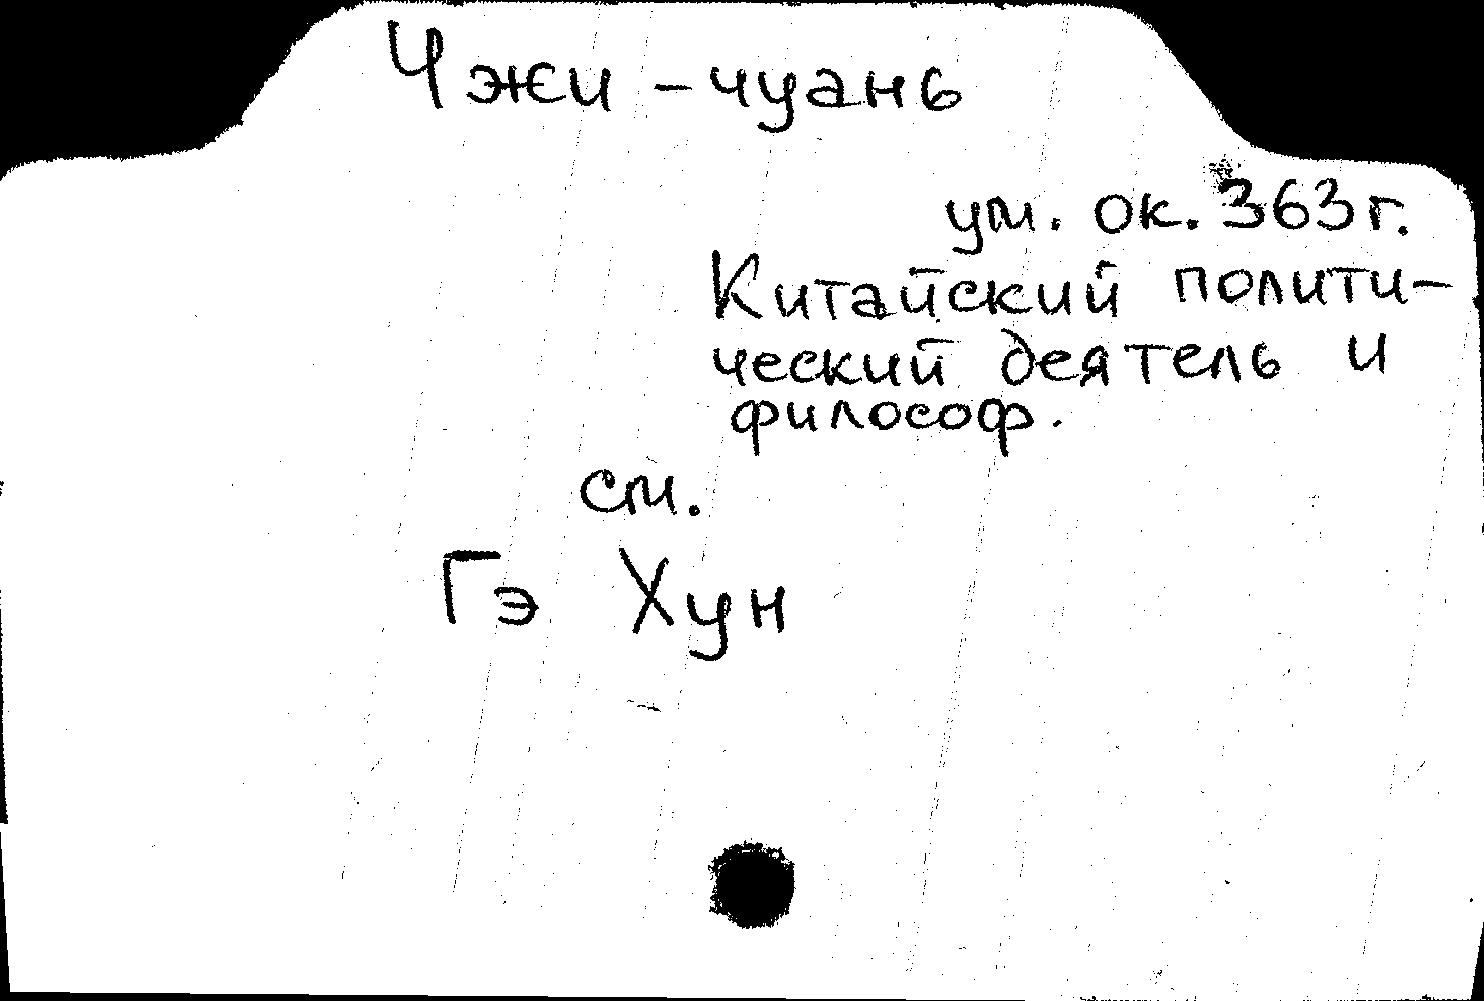 Чжи-чуань
ум. ок. 363 г.
Китайский полити-
ческий деятель и
философ.
см.
Гэ Хун